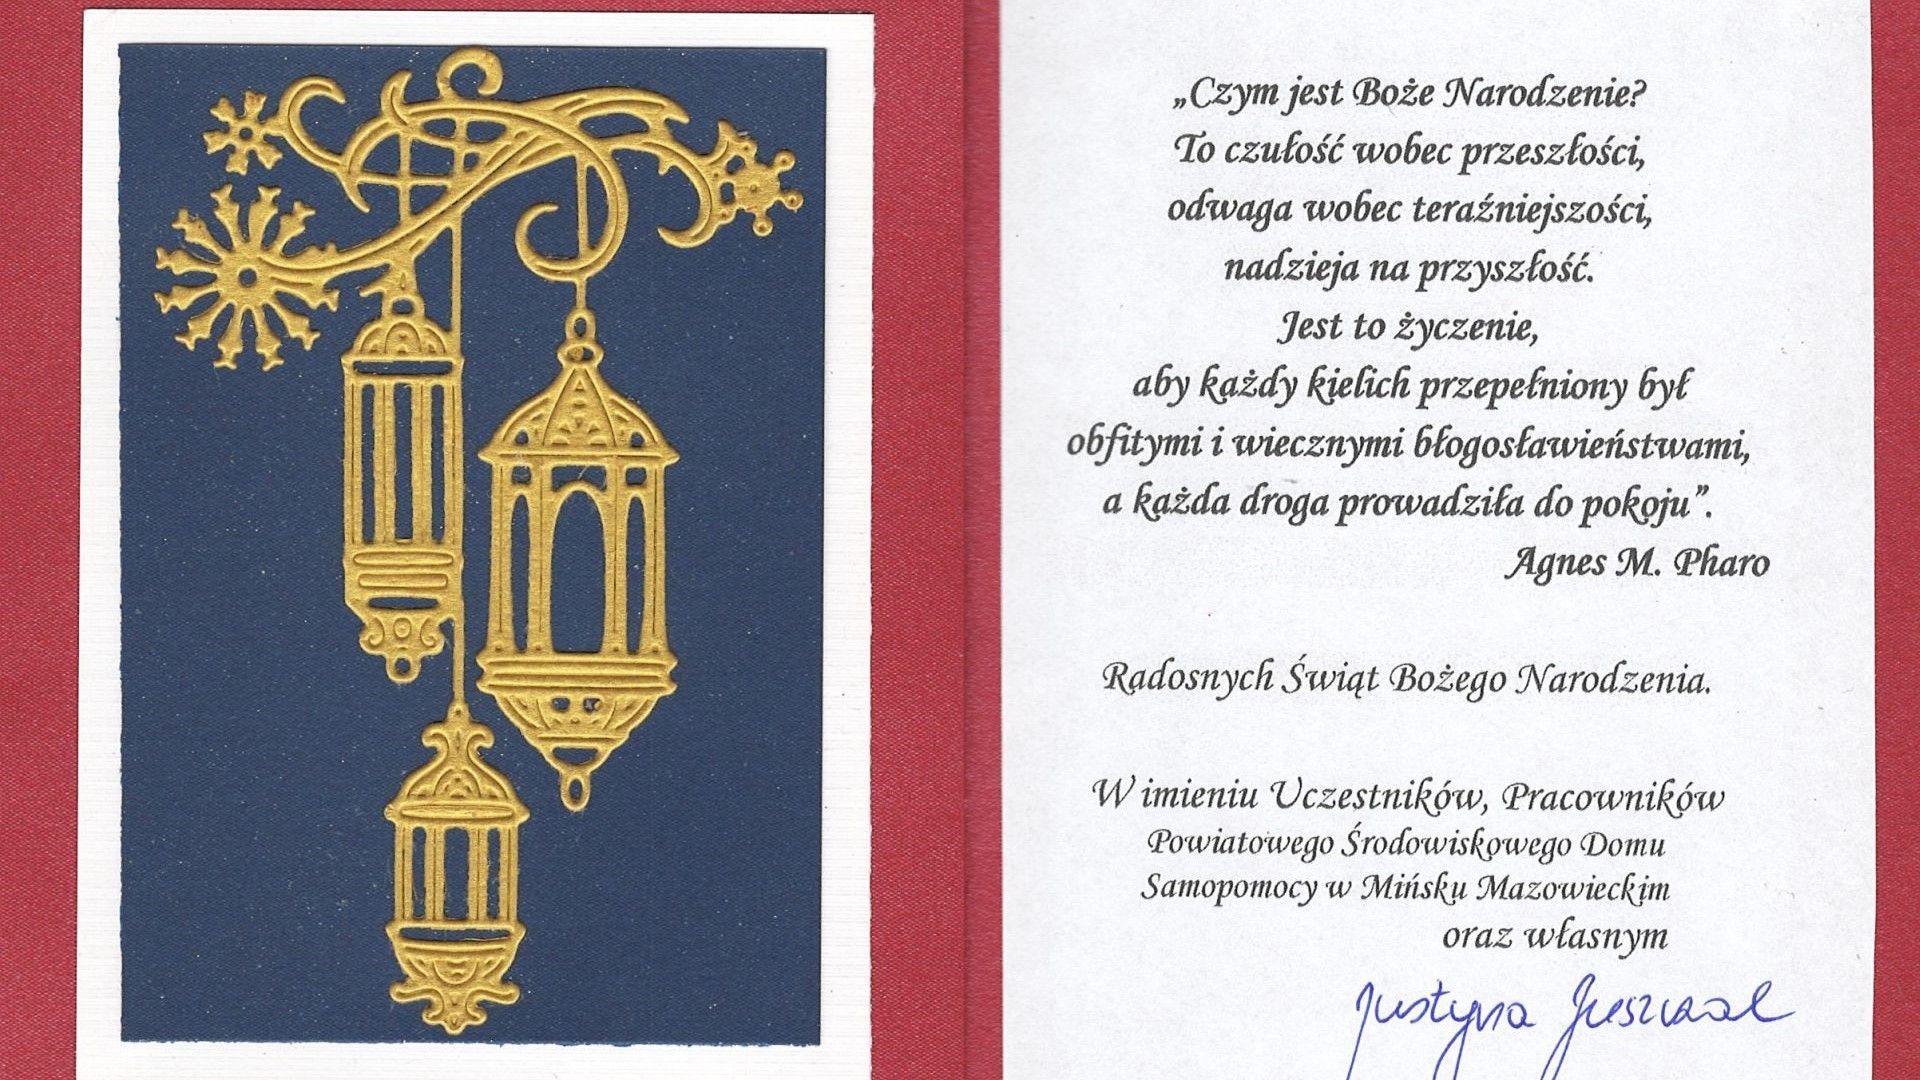 „Czym jest Boże Narodzenie?
To czułość wobec przeszłości,
odwaga wobec teraźniejszości,
nadzieja na przyszłość.
Jest to życzenie,
aby każdy kielich przepełniony był
obfitymi i wiecznymi błogosławieństwami,
a każda droga prowadziła do pokoju”.
Agnes M. Pharo
Radosnych Świąt Bożego Narodzenia.
W imieniu Uczestników, Pracowników
Powiatowego Środowiskowego Domu
Samopomocy w Mińsku Mazowieckim
oraz własnym
Justyna